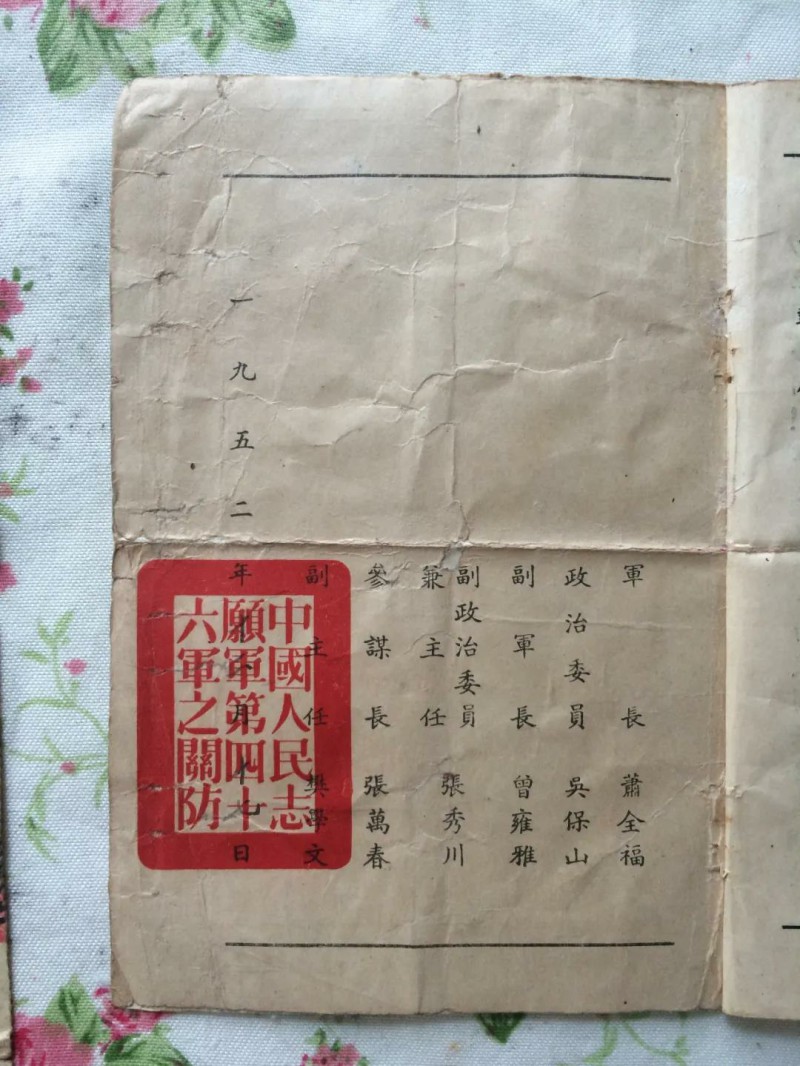 軍長 蕭全福
政治委員 吳保山
副軍長 曾雍雅
副政治委員
兼主任 張秀川
參謀長 張萬春
副主任 樊學文
一九五二年 月十七日
中國人民志
願軍第四十
六軍之關防